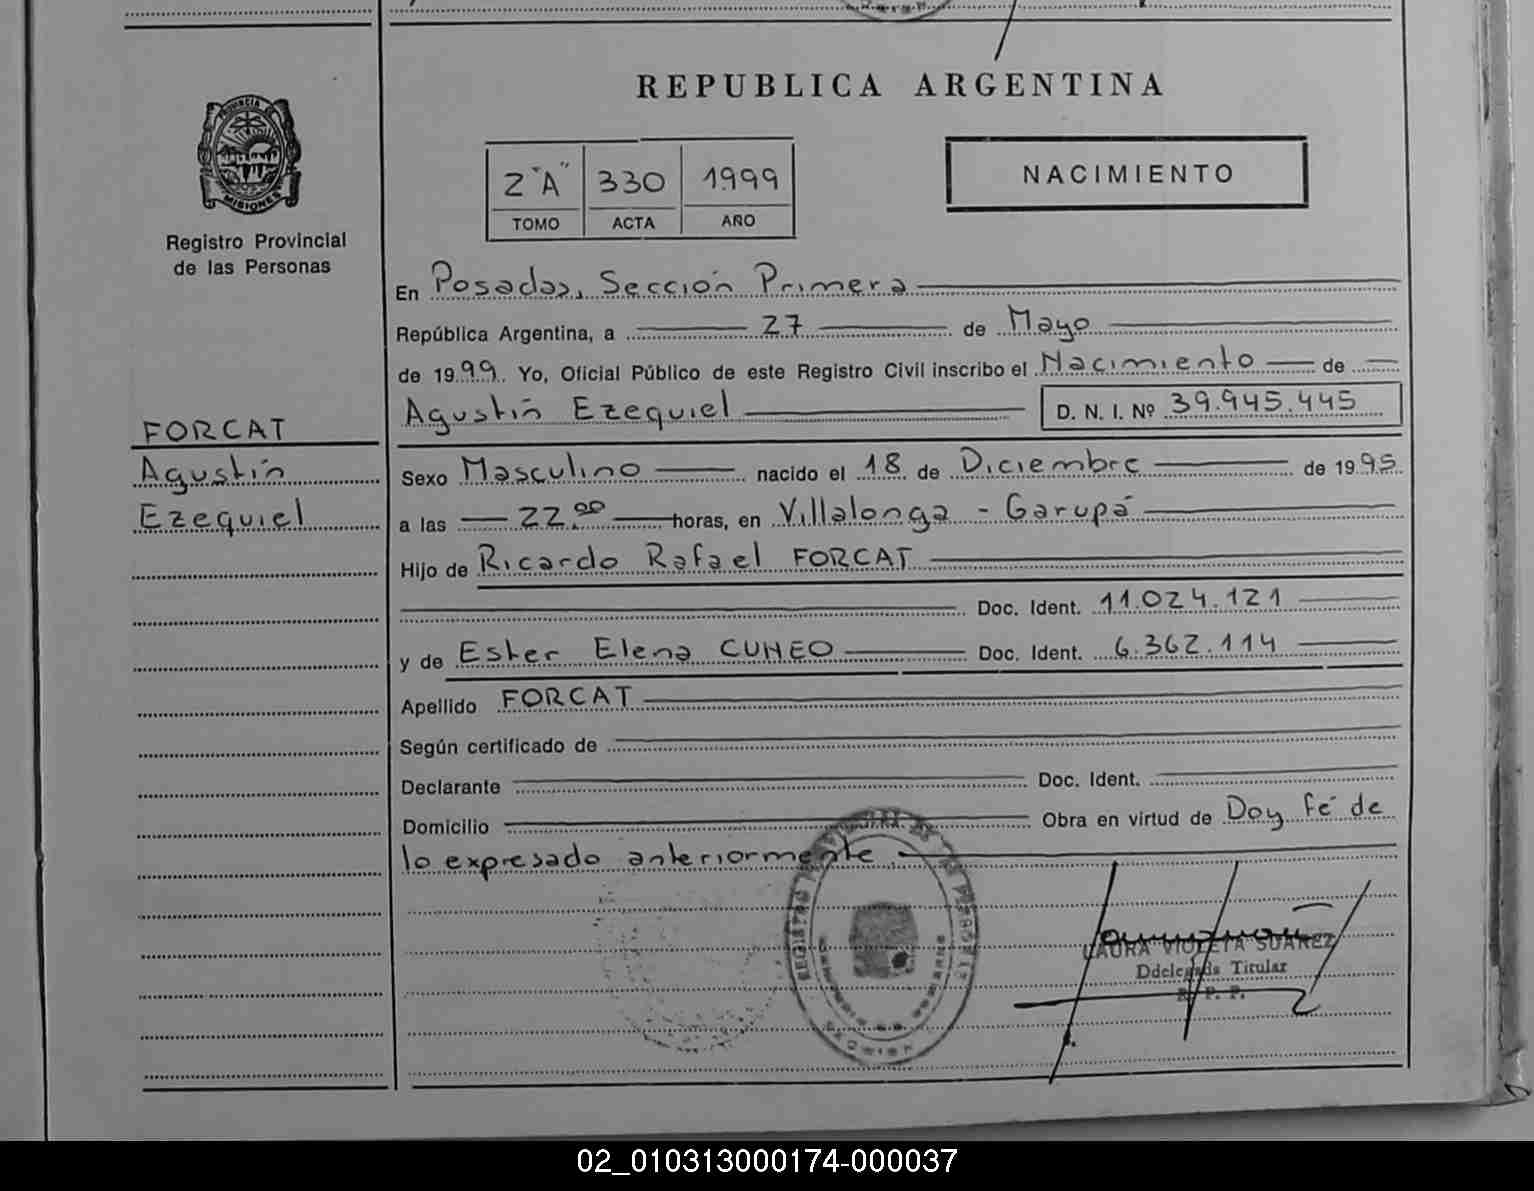 PROVINCIA DE
MISIONES
Registro Provincial
de las Personas
REPUBLICA ARGENTINA
2 "A" 330 1999
TOMO ACTA AÑO
NACIMIENTO
En Posadas, Sección Primera
República Argentina, a 27 de Mayo
de 1999. Yo, Oficial Público de este Registro Civil inscribo el Nacimiento de
Agustín Ezequiel D. N. I. Nº 39.945.445
FORCAT
Agustín
Ezequiel
Sexo Masculino nacido el 18 de Diciembre de 1995
a las 22.00 horas, en Villalonga - Garupá
Hijo de Ricardo Rafael FORCAT
Doc. Ident. 11.024.121
y de Ester Elena CUNEO Doc. Ident. 6.362.114
Apellido FORCAT
Según certificado de
Declarante Doc. Ident.
Domicilio Obra en virtud de Doy fé de
lo expresado anteriormente.
LAURA VIOLETA SUAREZ
Ddelegada Titular
R. P. P.
02_010313000174-000037